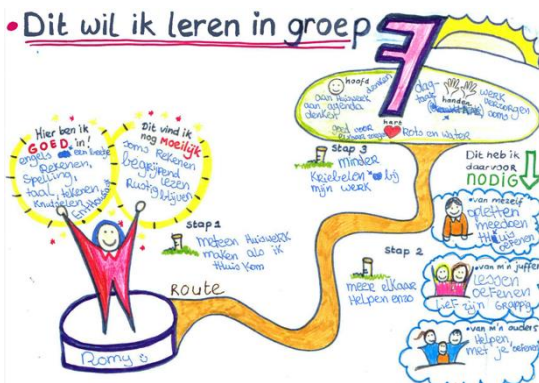 Dit wil ik leren in groep 7
Hier ben ik
GOED in!
engels een beetje
Rekenen,
Spelling,
taal, tekenen
Knutselen
Enthousiast
Dit vind ik
nog Moeilijk
soms Rekenen
begrijpend
lezen
Rustig blijven
hoofd
aan Huiswerk denken
aan agenda
denken
handen
dag-
taak
werk
verzorgen
soms
hart
goed voor
Rots en Water
stap 3
minder
Kriebelen bij
mijn werk
stap 1
meteen Huiswerk
maken als ik
thuis Kom
stap 2
meer elkaar
Helpen enzo
ROUTE
Romy
Dit heb ik
daarvoor
NODIG
van mezelf
opletten
meedoen
thuis
oefenen
van m'n juffen
Lessen
oefenen
Lief zijn Grappig
van m'n ouders
Helpen,
met je oefenen